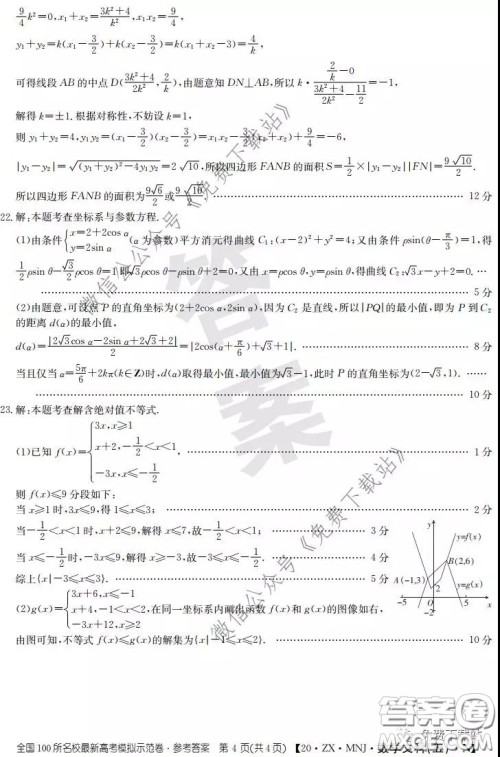 9/4 k²=0, x₁+x₂=(3k²+4)/k², x₁x₂=9/4,
y₁+y₂=k(x₁-3/2)+k(x₂-3/2)=k(x₁+x₂-3)=4/k,
可得线段 AB 的中点 D((3k²+4)/2k², 2/k), 由题意知 DN⊥AB, 所以 k·(2/k-0)/((3k²+4)/2k²-11/2)=-1,
解得 k=±1. 根据对称性, 不妨设 k=1,
则 y₁+y₂=4, y₁y₂=(x₁-3/2)(x₂-3/2)=x₁x₂-3/2(x₁+x₂)+9/4=-6,
|y₁-y₂|=√((y₁+y₂)²-4y₁y₂)=2√10, 所以四边形 FANB 的面积 S=1/2×|y₁-y₂||FN|=9√10/2.
所以四边形 FANB 的面积为9√6/2或9√10/2. 12 分
22. 解: 本题考查坐标系与参数方程.
(1)由条件{x=2+2cos α y=2sin α (α 为参数)平方消元得曲线 C₁:(x-2)²+y²=4; 又由条件 ρsin(θ-π/3)=1, 得
1/2ρsin θ-√3/2ρcos θ=1 即√3ρcos θ-ρsin θ+2=0, 又由 x=ρcos θ, y=ρsin θ, 得曲线 C₂:√3x-y+2=0.
5 分
(2)由题意, 可设点 P 的直角坐标为(2+2cos α,2sin α), 因为 C₂ 是直线, 所以|PQ|的最小值, 即为 P 到 C₂
的距离 d(α)的最小值,
d(α)=|2√3cos α-2sin α+2√3+2|/2=|2cos(α+π/6)+√3+1|. 8 分
当且仅当 α=5π/6+2kπ(k∈Z)时, d(α)取得最小值, 最小值为√3-1, 此时 P 的直角坐标为(2-√3,1).
10 分
23. 解: 本题考查解含绝对值不等式.
(1)已知 f(x)={3x, x≥1 x+2, -1/2<x<1. -3x, x≤-1/2 1 分
则 f(x)≤9 分段如下:
当 x≥1 时, 3x≤9, 得 1≤x≤3; 2 分
当-1/2<x<1 时, x+2≤9, 解得 x≤7, 故-1/2<x<1; 3 分
当 x≤-1/2时, -3x≤9, 解得 x≥-3, 故-3≤x≤-1/2. 4 分
综上{x|-3≤x≤3}. 5 分
(2)g(x)={3x+6, x≤-1 x+4, -1<x<2, 在同一坐标系内画出函数 f(x)和 g(x)的图像如右, -3x+12, x≥2
由图可知, 不等式 f(x)≤g(x)的解集为{x|-1≤x≤2}. 10 分
y
y=f(x)
B(2,6)
A(-1,3)
y=g(x)
-5
0
2
5
x
-2
全国 100 所名校最新高考模拟示范卷·参考答案 第 4 页(共 4 页) 【20·ZX·MNJ·数学文科(五)
答案
微信公众号《免费下载站》
微信公众号《免费下载站》